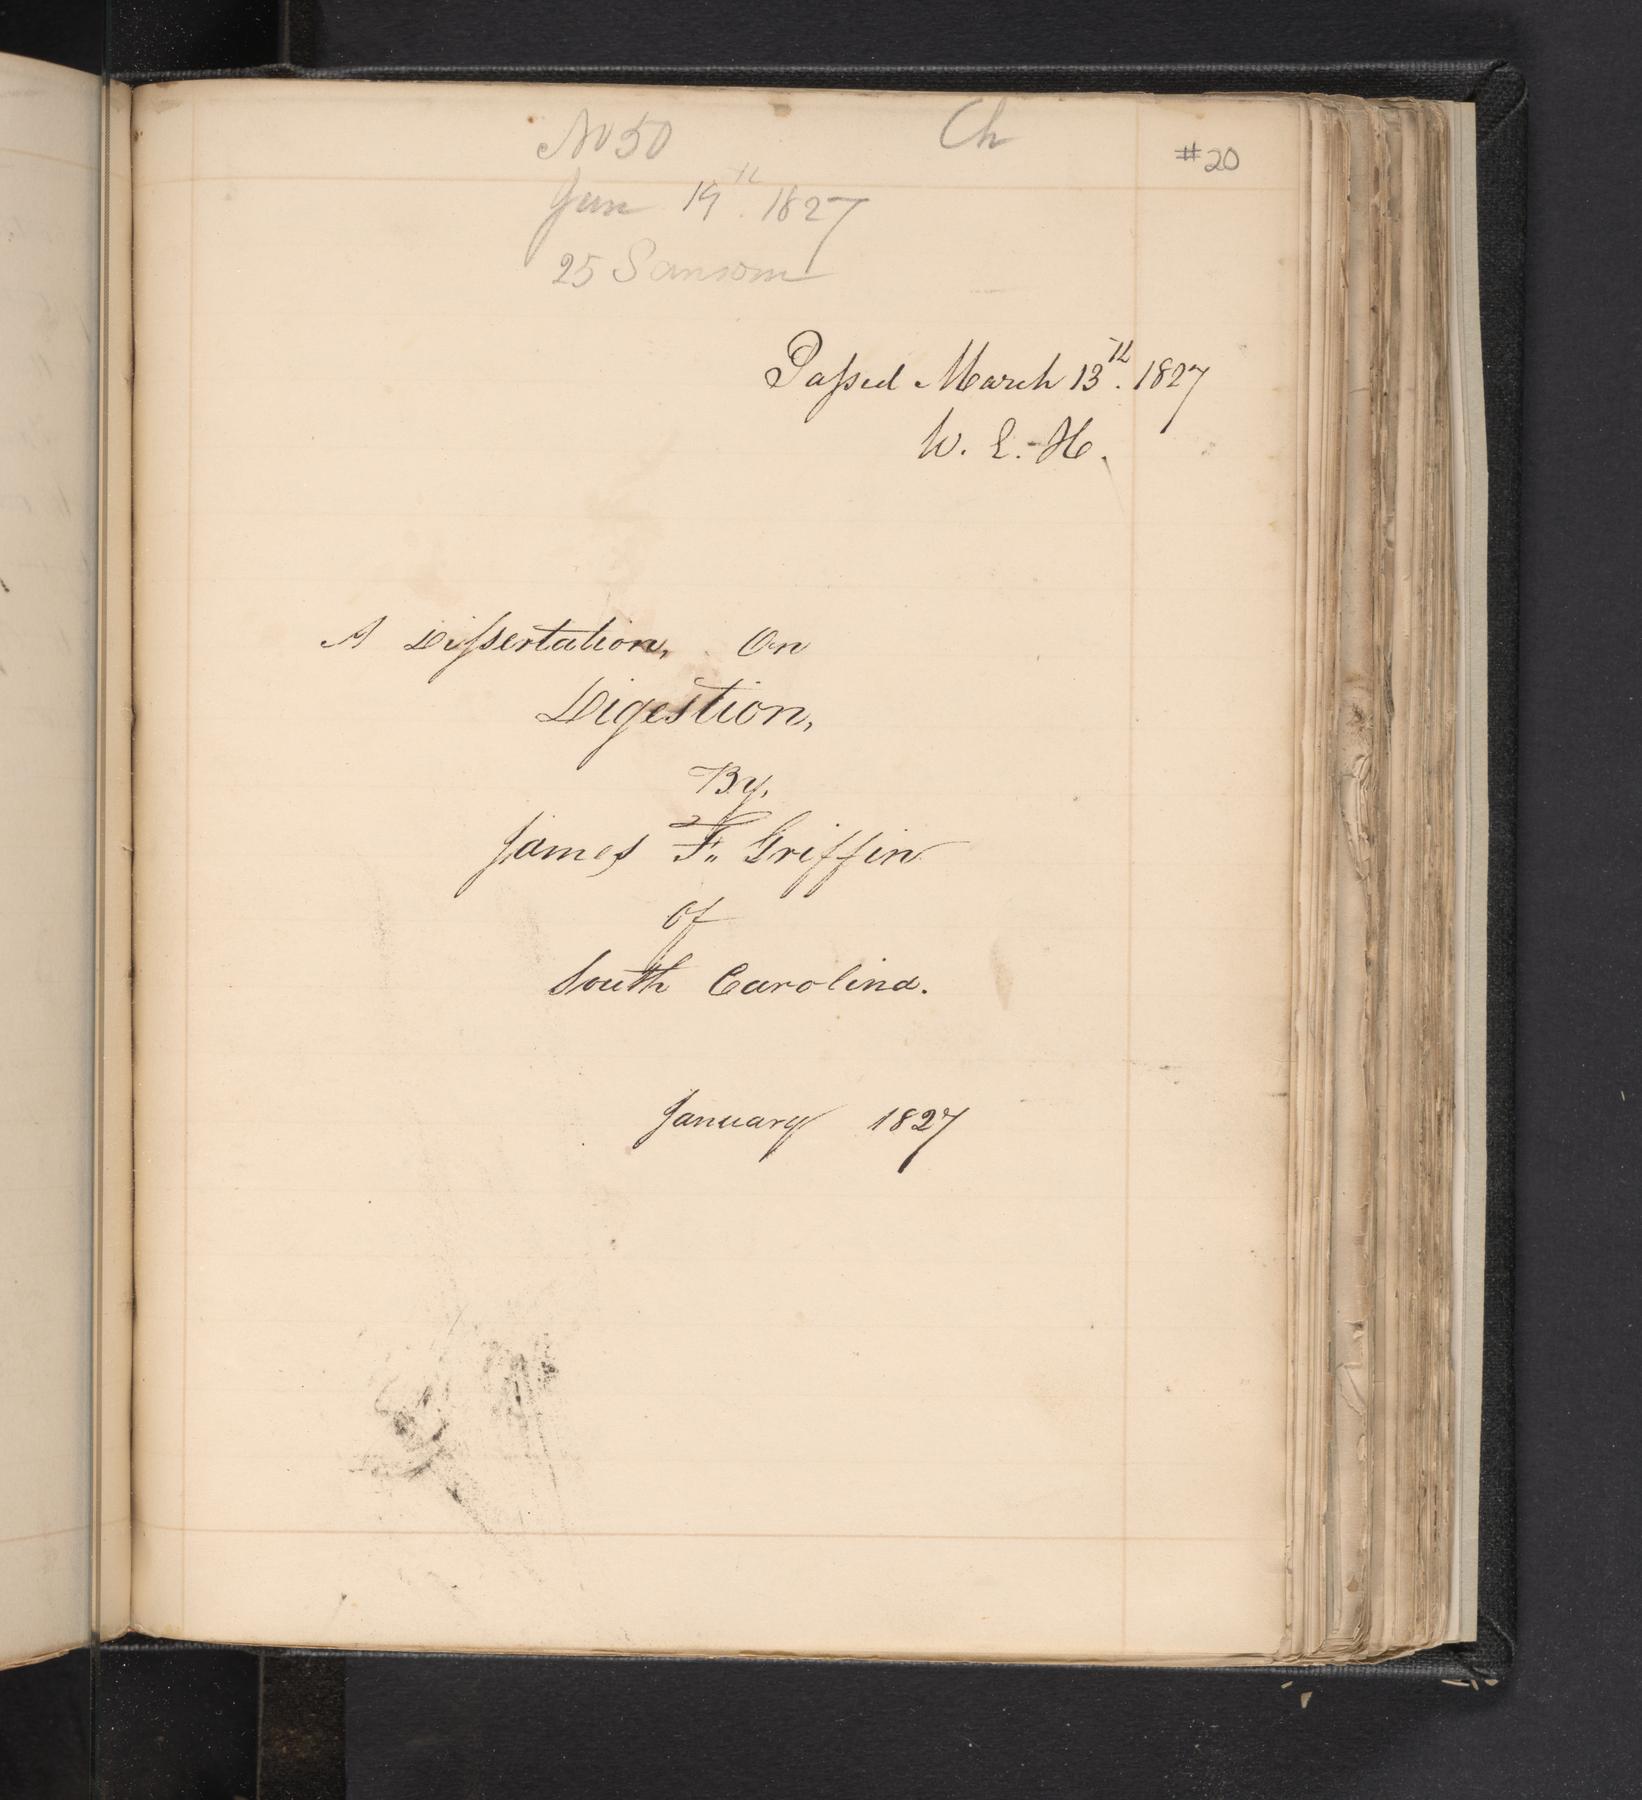 No 50
Ch
#20
Jan 19th 1827
25 Sansom
Paſsed March 13th. 1827
W. E. H.
A Diſsertation, On
Digestion,
By,
James F. Griffin
Of
South Carolina.
January 1827